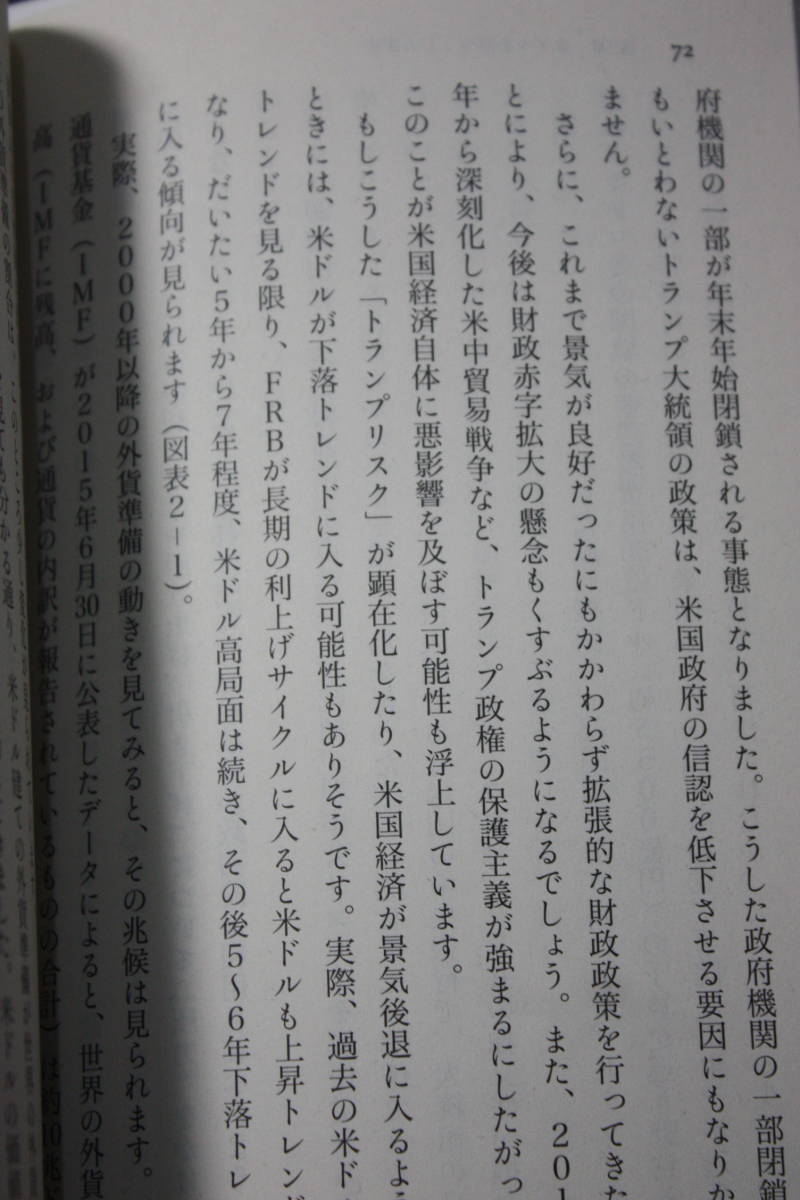 72
府機関の一部が年末年始閉鎖される事態となりました。こうした政府機関の一部閉鎖
もいとわないトランプ大統領の政策は、米国政府の信認を低下させる要因にもなりか
ません。
さらに、これまで景気が良好だったにもかかわらず拡張的な財政政策を行ってきた
とにより、今後は財政赤字拡大の懸念もくすぶるようになるでしょう。また、201
年から深刻化した米中貿易戦争など、トランプ政権の保護主義が強まるにしたがっ
このことが米国経済自体に悪影響を及ぼす可能性も浮上しています。
もしこうした「トランプリスク」が顕在化したり、米国経済が景気後退に入るよ
ときには、米ドルが下落トレンドに入る可能性もありそうです。実際、過去の米ド
トレンドを見る限り、FRBが長期の利上げサイクルに入ると米ドルも上昇トレン
なり、だいたい5年から7年程度、米ドル高局面は続き、その後5〜6年下落トレ
に入る傾向が見られます(図表2-1)。
実際、2000年以降の外貨準備の動きを見てみると、その兆候は見られます。
通貨基金(IMF)が2015年6月30日に公表したデータによると、世界の外貨
高(IMFに残高、および通貨の内訳が報告されているものの合計)は約10兆